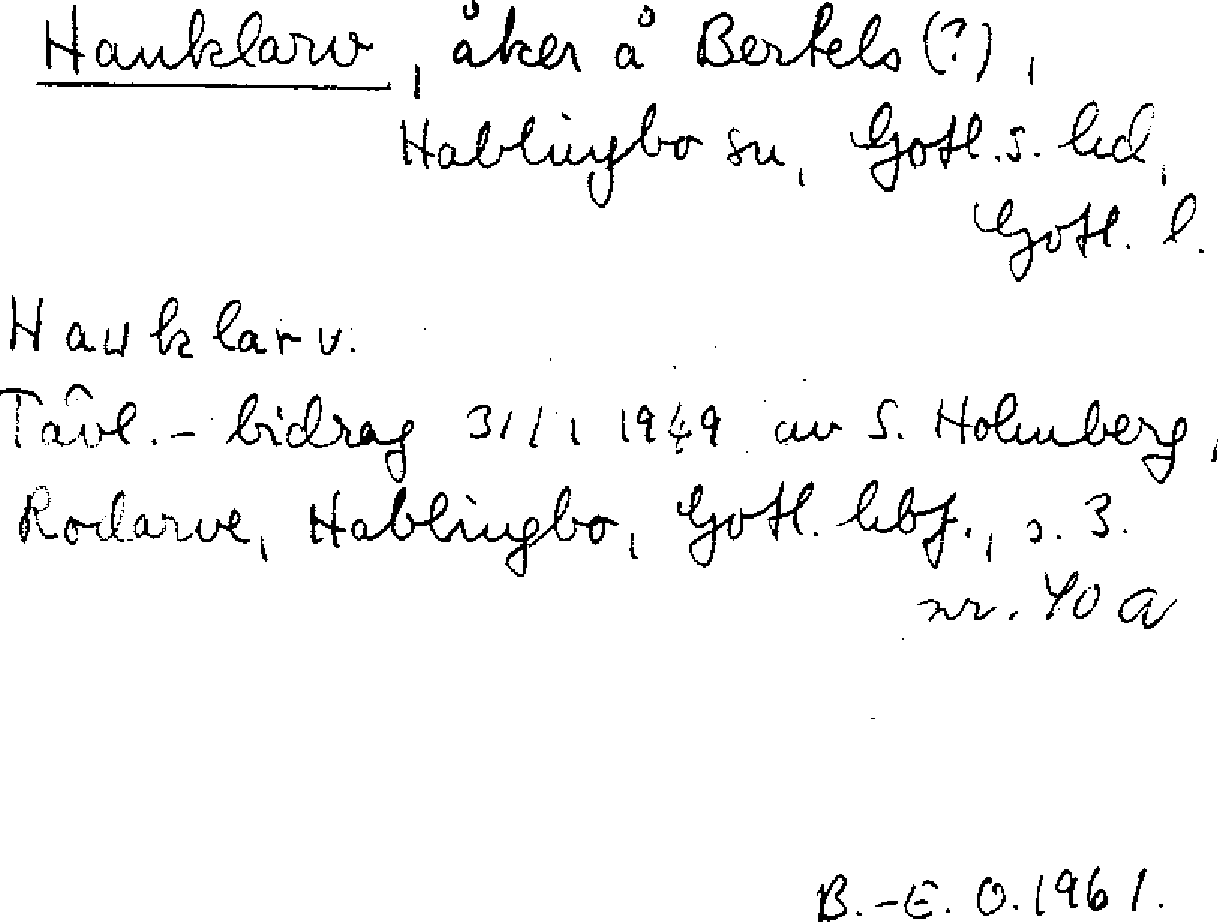 Hauklarv, åker å Bertels (?),
Hablingbo sn, Gotl. s. hd,
Gotl. l.
Hauklarv.
Tävl.-bidrag 31/1 1949 av S. Holmberg,
Rodarve, Hablingbo, Gotl. hbf., s. 3.
nr. 40 a
B.-E. O. 1961.